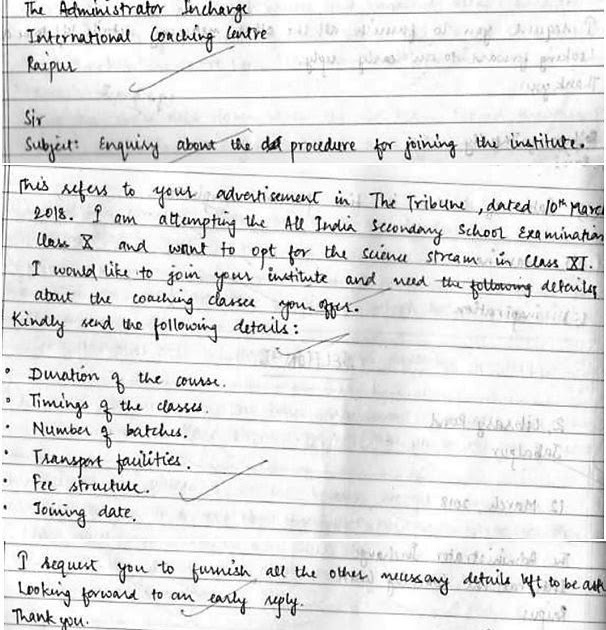 The Administrator Incharge
International Coaching Centre
Raipur
Sir
Subject: Enquiry about the procedure for joining the institute.
This refers to your advertisement in The Tribune, dated 10th March
2018. I am attempting the All India Secondary School Examination
Class X and want to opt for the science stream in Class XI.
I would like to join your institute and need the following details
about the coaching classes you offer.
Kindly send the following details:
• Duration of the course.
• Timings of the classes.
• Number of batches.
• Transport facilities.
• Fee structure.
• Joining date.
I request you to furnish all the other necessary details left to be ask
Looking forward to an early reply.
Thank you.